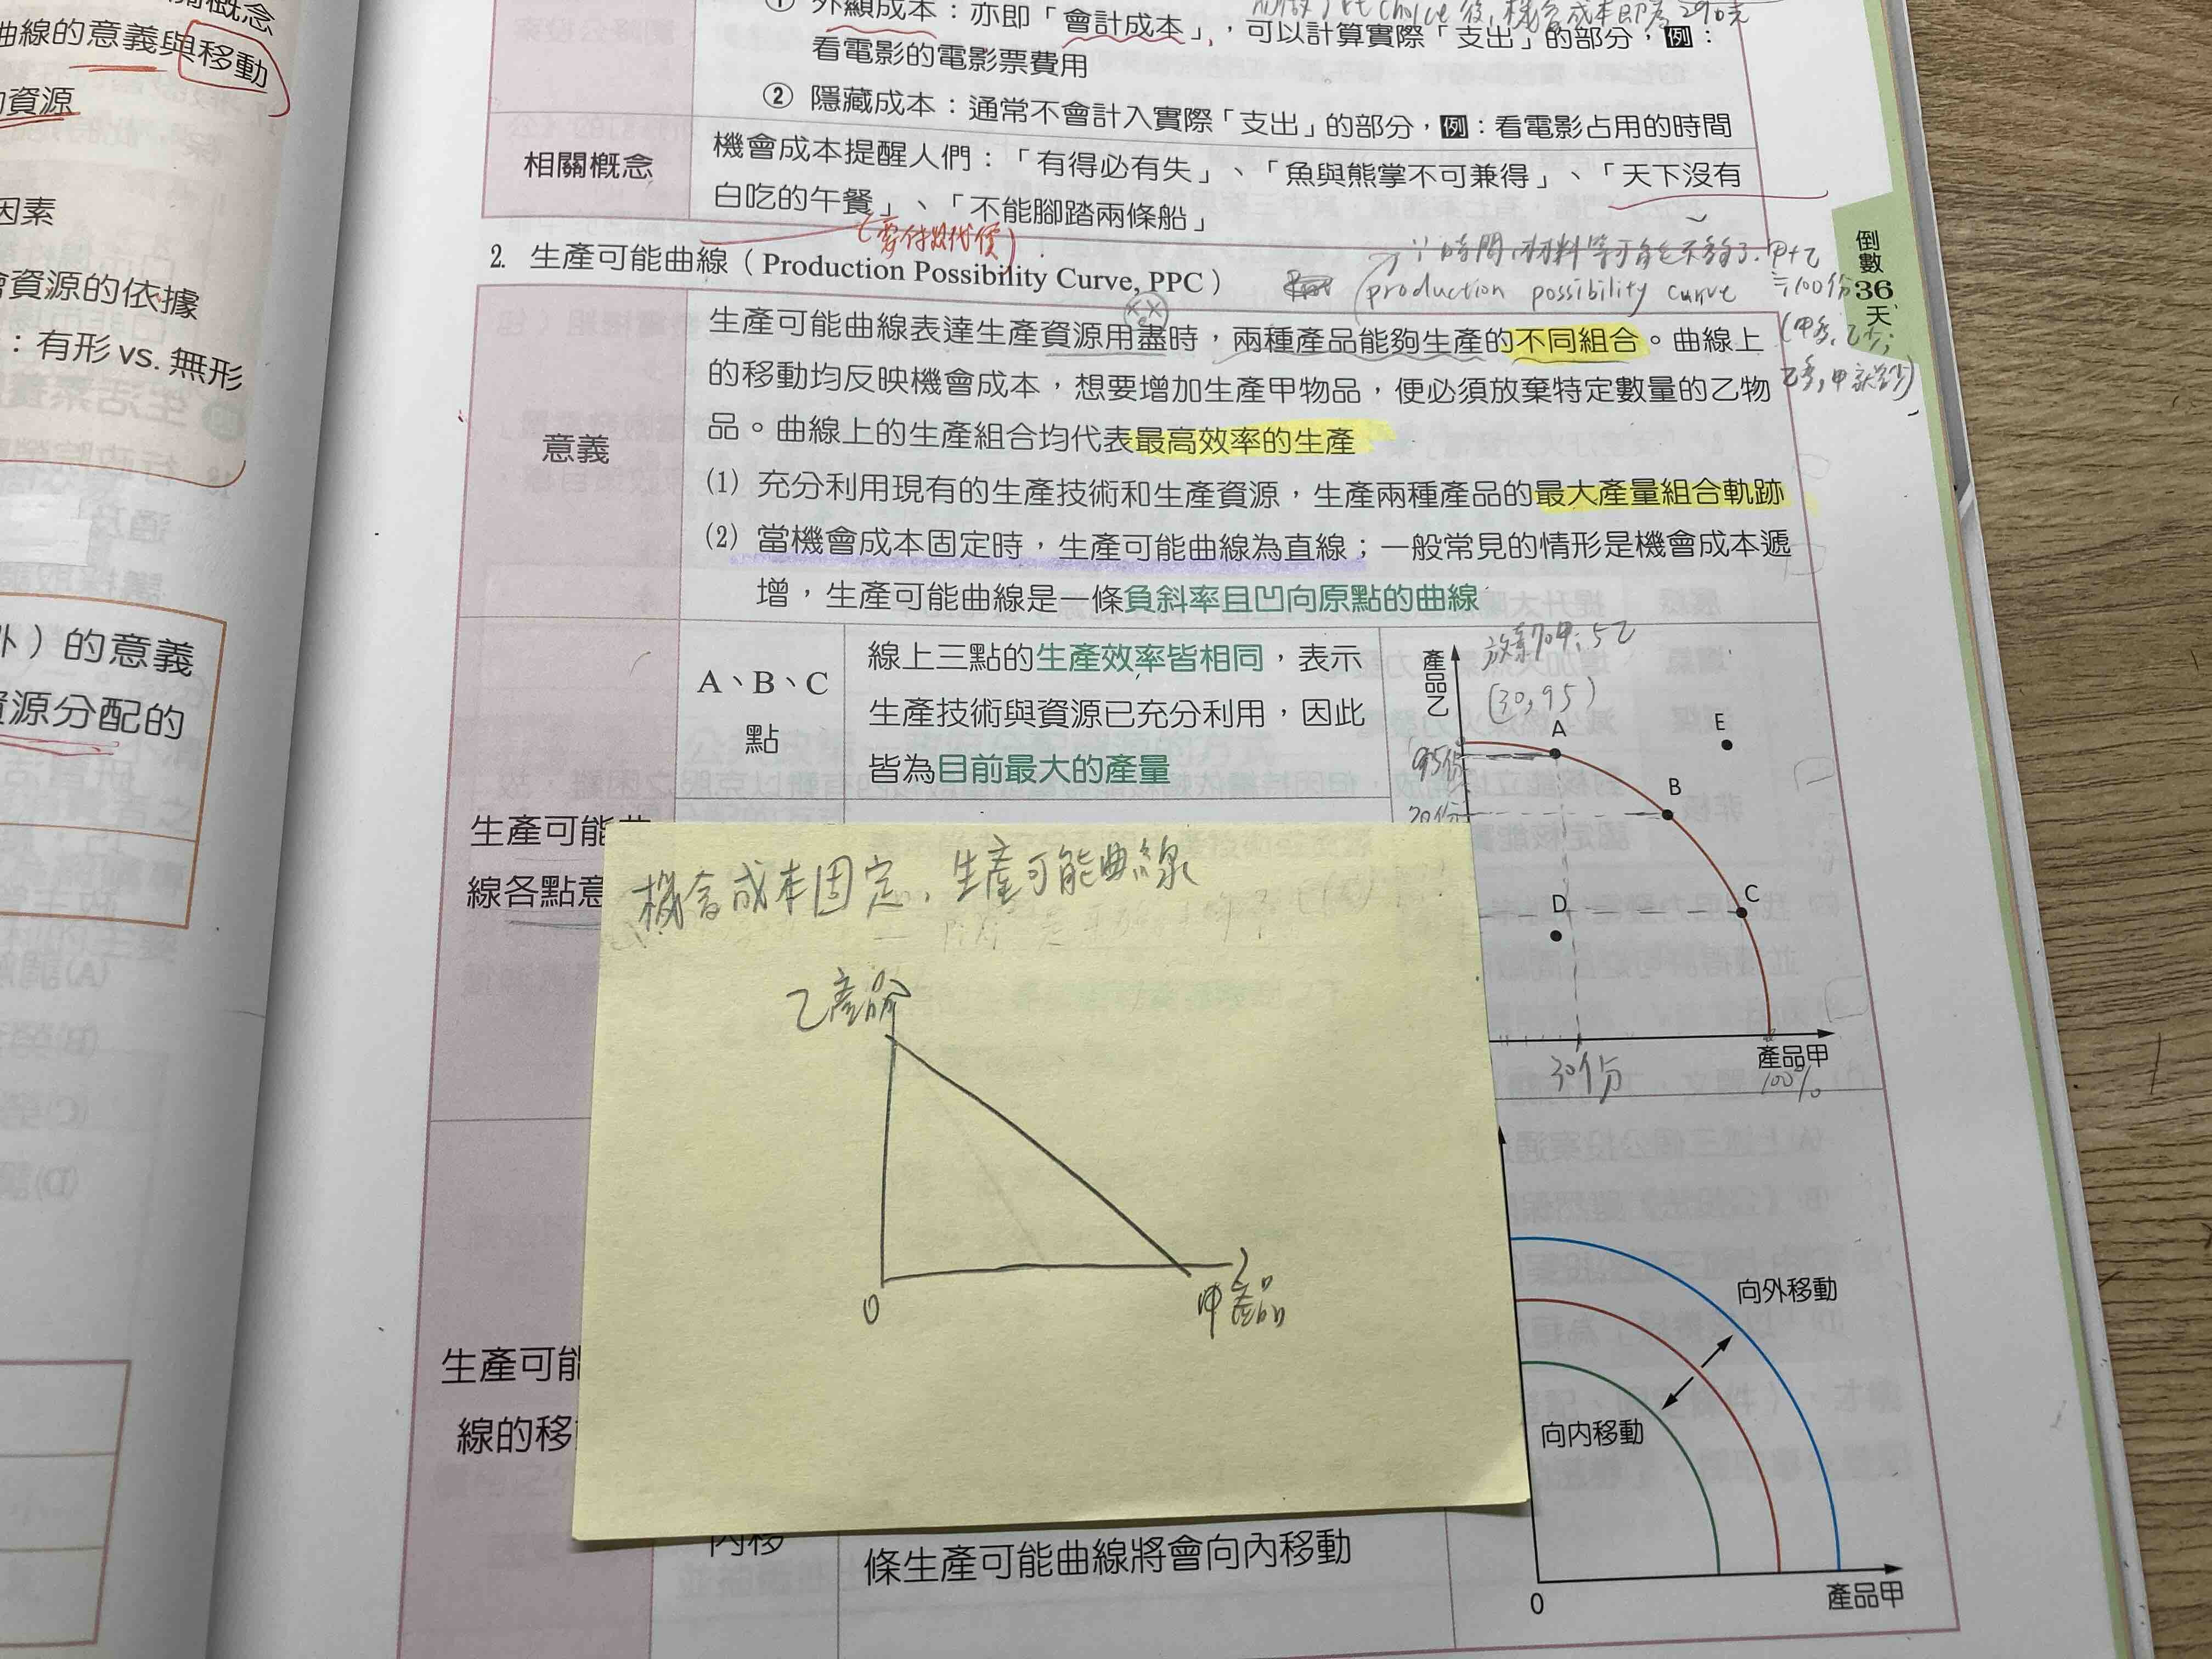 曲線的意義與移動
資源
因素
資源的依據
：有形 vs. 無形
外）的意義
資源分配的
① 外顯成本：亦即「會計成本」，可以計算實際「支出」的部分，例：
看電影的電影票費用
② 隱藏成本：通常不會計入實際「支出」的部分，例：看電影占用的時間
相關概念
機會成本提醒人們：「有得必有失」、「魚與熊掌不可兼得」、「天下沒有
白吃的午餐」、「不能腳踏兩條船」
2. 生產可能曲線（Production Possibility Curve, PPC）
production possibility curve
≒100份
倒數36天
意義
生產可能曲線表達生產資源用盡時，兩種產品能夠生產的不同組合。曲線上
的移動均反映機會成本，想要增加生產甲物品，便必須放棄特定數量的乙物
品。曲線上的生產組合均代表最高效率的生產
(1) 充分利用現有的生產技術和生產資源，生產兩種產品的最大產量組合軌跡
(2) 當機會成本固定時，生產可能曲線為直線；一般常見的情形是機會成本遞
增，生產可能曲線是一條負斜率且凹向原點的曲線
A、B、C
點
線上三點的生產效率皆相同，表示
生產技術與資源已充分利用，因此
皆為目前最大的產量
產品乙
(30,95)
A
E
95份
B
C
D
30份
產品甲
100%
生產可能曲
線各點意
機會成本固定，生產可能曲線
乙產品
0
甲產品
生產可能
線的移
內移
條生產可能曲線將會向內移動
向外移動
向內移動
0
產品甲